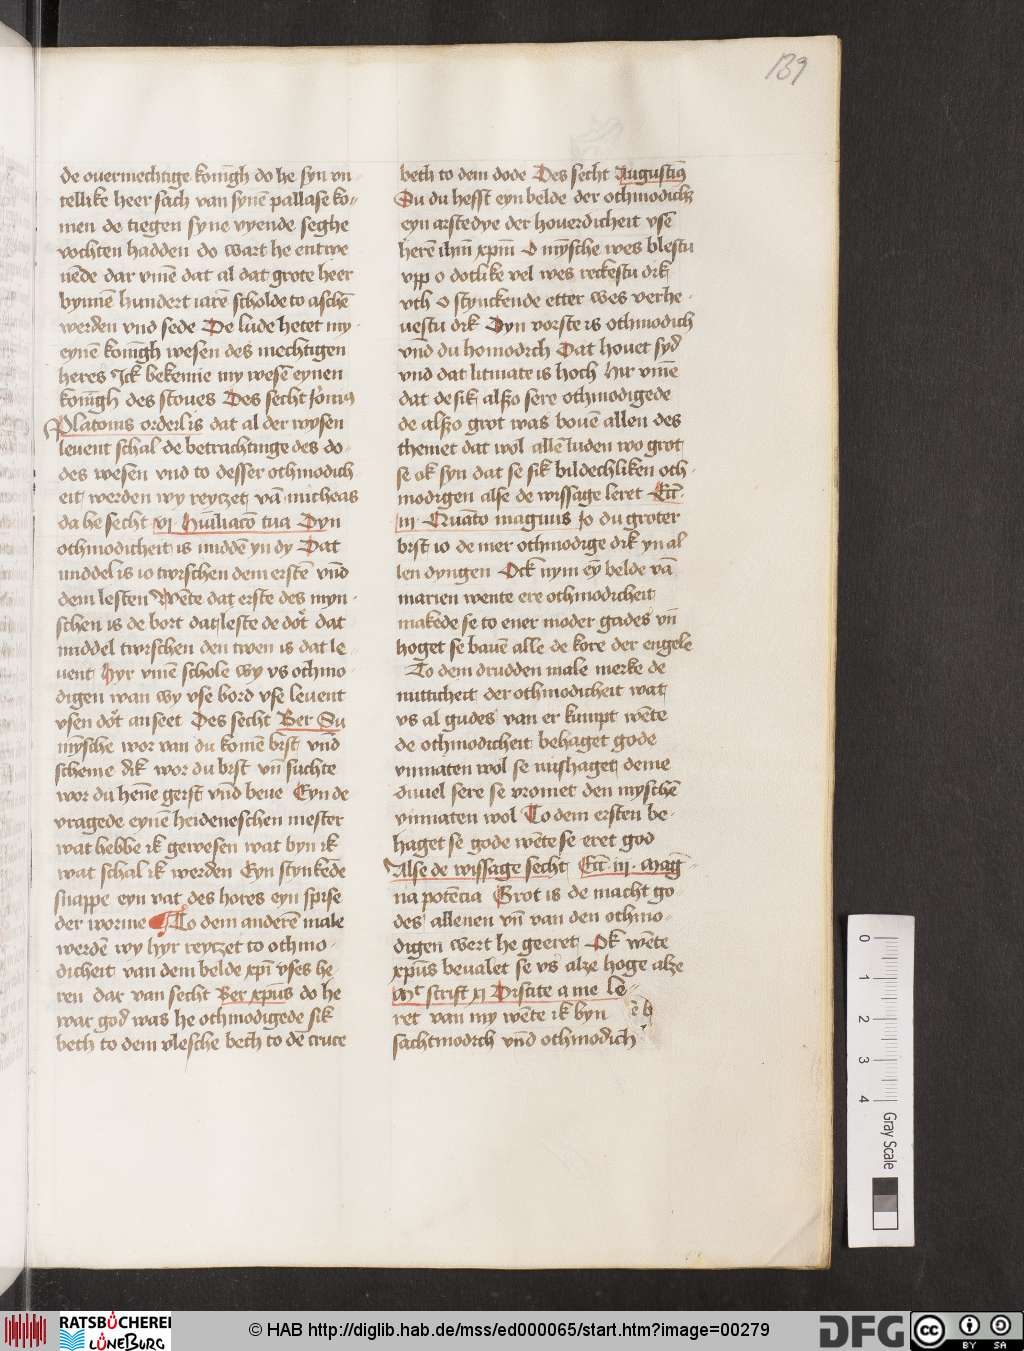 139
de ouermechtige konīgh do he syn vn
tellike heer sach van synē pallase ko-
men de tiegen syne vyende seghe
vochten hadden do wart he entwe
uēde dar vmē dat al dat grote heer
bynnē hundert iarē scholde to aschē
werden vnd sede De lude hetet my
eynē konīgh wesen des mechtigen
heres Ick bekenne my wesē eynen
konīgh des stoues Des secht
Platonis orderl is dat al der wysen
leuent schal de betrachtinge des do-
des wesen vnd to desser othmodich
eit werden wy reytzet vā micheas
da he secht vi Hūiliacō tua Dyn
othmodicheit is middē yn dy Dat
middel is io twschen dem erstē vn̄d
dem lesten Wēte dat erste des myn-
schen is de bort dat leste de dōt dat
middel twschen den twen is dat le-
uent Hyr vmē schole wy vs othmo-
digen wan wy vse bord vse leuent
vsen dōt anseet Des secht Ber Su
mȳsche wor van du komē brst vn̄d
scheme dik wor du brst vn̄ suchte
wor du henē gerst vn̄d beue Eyn de
vragede eynē heideneschen mester
wat hebbe ik gewesen wat byn ik
wat schal ik werden Eyn stynkēde
snappe eyn vat des hores eyn spise
der worme To dem anderē male
werdē wy hyr reytzet to othmo-
dicheit van dem belde xpī vses he-
ren dar van secht Ber xpūs do he
war god was he othmodigede sik
beth to dem vlesche beth to dē cruce
beth to dem dode Des secht Augustin9
Su du hefft eyn belde der othmodichz
eyn arstedye der houerdicheit vsē
herē ihm̄ xpm̄ O mȳsche wes blestu
vpp o dotlike vel wes reckestu dik
vth O stynckende etter wes verhe-
uestu dik Dyn vorste is othmodich
vn̄d du homodich Dat houet syd
vnd dat litmate is hoch Hir vmē
dat de sik alßo sere othmodigede
de alßo grot was bouē allen des
themet dat wol allē luden wo grot
se ok syn dat se sik bildechliken oth-
modigen alse de wissage leret Ecc̄
iii Quāto magnus Jo du groter
brst io de mer othmodige dik yn al
len dyngen Ock nym eȳ belde vā
marien wente ere othmodicheit
makede se to ener moder gades vn̄
hoget se bauē alle de kore der engele
To dem drudden male merke de
nutticheit der othmodicheit wat
vs al gudes van er kumpt wēte
de othmodicheit behaget gode
vnmaten wol se mishaget deme
duuel sere se vromet den myschē
vnmaten wol To dem ersten be-
haget se gode wēte se eret god
Alse de wissage secht Ecc̄ iii Mag-
na potēcia Grot is de macht go
des allenen vn̄ van den othmo-
digen wert he geeret Ok wēte
xpūs beualet se vs alze hoge alze
scrift xi Discite a me Le-
ret van my wēte ik byn
sachtmodich vn̄d othmodich
0
1
2
3
4
Gray Scale
RATSBÜCHEREI
LÜNEBURG
© HAB http://diglib.hab.de/mss/ed000065/start.htm?image=00279
DFG
CC
BY SA